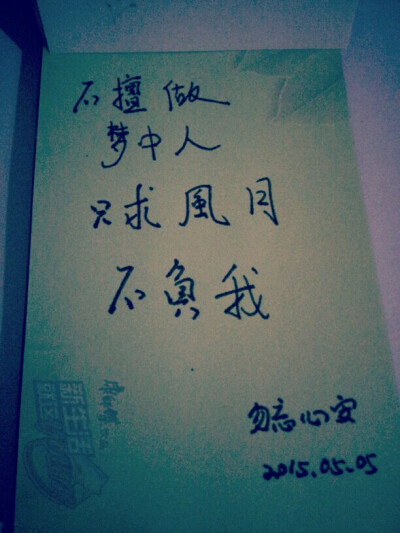 不擅做
梦中人
只求風月
不負我
勿忘心安
2015.05.05
新生活